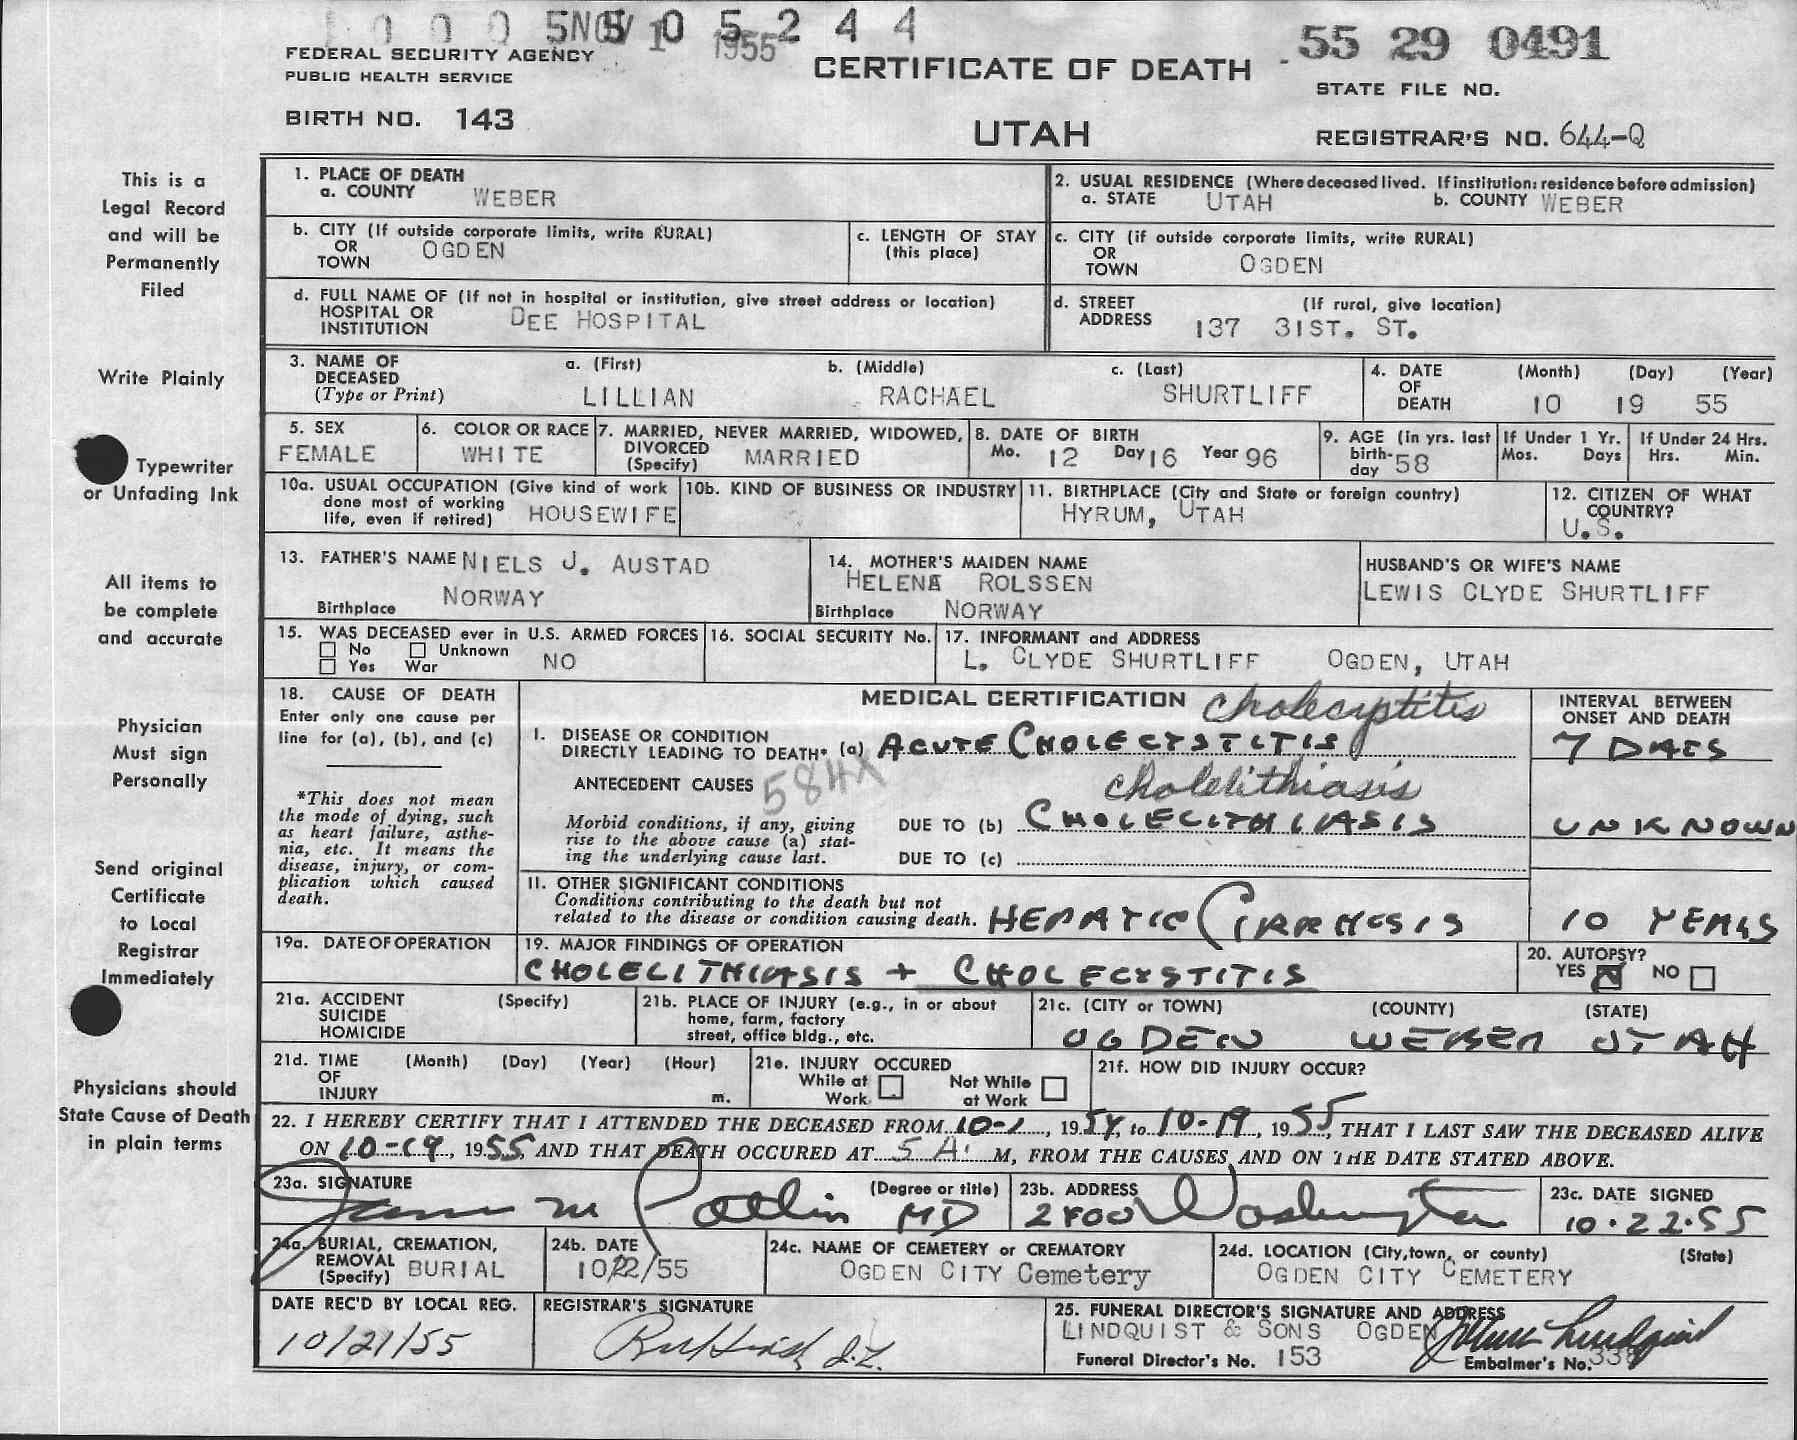 1 0 0 0 5 5 0 5 2 4 4
NOV 1 1955
FEDERAL SECURITY AGENCY
PUBLIC HEALTH SERVICE
BIRTH NO. 143
CERTIFICATE OF DEATH
UTAH
55 29 0491
STATE FILE NO.
REGISTRAR'S NO. 644-Q
This is a
Legal Record
and will be
Permanently
Filed
Write Plainly
Typewriter
or Unfading Ink
All items to
be complete
and accurate
Physician
Must sign
Personally
Send original
Certificate
to Local
Registrar
Immediately
Physicians should
State Cause of Death
in plain terms
1. PLACE OF DEATH
a. COUNTY WEBER
2. USUAL RESIDENCE (Where deceased lived. If institution: residence before admission)
a. STATE UTAH b. COUNTY WEBER
b. CITY (If outside corporate limits, write RURAL)
OR
TOWN OGDEN
c. LENGTH OF STAY
(this place)
c. CITY (if outside corporate limits, write RURAL)
OR
TOWN OGDEN
d. FULL NAME OF (If not in hospital or institution, give street address or location)
HOSPITAL OR
INSTITUTION DEE HOSPITAL
d. STREET (If rural, give location)
ADDRESS 137 31ST. ST.
3. NAME OF
DECEASED
(Type or Print)
a. (First) b. (Middle) c. (Last)
LILLIAN RACHAEL SHURTLIFF
4. DATE
OF
DEATH
(Month) (Day) (Year)
10 19 55
5. SEX
FEMALE
6. COLOR OR RACE
WHITE
7. MARRIED, NEVER MARRIED, WIDOWED,
DIVORCED
(Specify) MARRIED
8. DATE OF BIRTH
Mo. 12 Day 16 Year 96
9. AGE (in yrs. last
birth-
day 58
If Under 1 Yr.
Mos. Days
If Under 24 Hrs.
Hrs. Min.
10a. USUAL OCCUPATION (Give kind of work
done most of working
life, even if retired) HOUSEWIFE
10b. KIND OF BUSINESS OR INDUSTRY
11. BIRTHPLACE (City and State or foreign country)
HYRUM, UTAH
12. CITIZEN OF WHAT
COUNTRY?
U.S.
13. FATHER'S NAME NIELS J. AUSTAD
Birthplace NORWAY
14. MOTHER'S MAIDEN NAME
HELENA ROLSSEN
Birthplace NORWAY
HUSBAND'S OR WIFE'S NAME
LEWIS CLYDE SHURTLIFF
15. WAS DECEASED ever in U.S. ARMED FORCES
No Unknown
Yes War NO
16. SOCIAL SECURITY No.
17. INFORMANT and ADDRESS
L. CLYDE SHURTLIFF OGDEN, UTAH
18. CAUSE OF DEATH
Enter only one cause per
line for (a), (b), and (c)
*This does not mean
the mode of dying, such
as heart failure, asthe-
nia, etc. It means the
disease, injury, or com-
plication which caused
death.
MEDICAL CERTIFICATION cholecystitis
I. DISEASE OR CONDITION
DIRECTLY LEADING TO DEATH* (a) ACUTE CHOLECYSTITIS
ANTECEDENT CAUSES 584X
cholelithiasis
Morbid conditions, if any, giving
rise to the above cause (a) stat-
ing the underlying cause last.
DUE TO (b) CHOLELITHIASIS
DUE TO (c)
INTERVAL BETWEEN
ONSET AND DEATH
7 DAYS
UNKNOWN
11. OTHER SIGNIFICANT CONDITIONS
Conditions contributing to the death but not
related to the disease or condition causing death. HEPATIC CIRRHOSIS
10 YEARS
19a. DATE OF OPERATION
19. MAJOR FINDINGS OF OPERATION
CHOLELITHIASIS + CHOLECYSTITIS
20. AUTOPSY?
YES NO
21a. ACCIDENT (Specify)
SUICIDE
HOMICIDE
21b. PLACE OF INJURY (e.g., in or about
home, farm, factory
street, office bldg., etc.
21c. (CITY or TOWN) (COUNTY) (STATE)
OGDEN WEBER UTAH
21d. TIME (Month) (Day) (Year) (Hour)
OF
INJURY m.
21e. INJURY OCCURED
While at Not While
Work at Work
21f. HOW DID INJURY OCCUR?
22. I HEREBY CERTIFY THAT I ATTENDED THE DECEASED FROM 10-1, 1954, to 10-19, 1955, THAT I LAST SAW THE DECEASED ALIVE
ON 10-19, 1955, AND THAT DEATH OCCURED AT 5 A. M, FROM THE CAUSES AND ON THE DATE STATED ABOVE.
23a. SIGNATURE (Degree or title)
MD
23b. ADDRESS
Washington
23c. DATE SIGNED
10-22-55
24a. BURIAL, CREMATION,
REMOVAL
(Specify) BURIAL
24b. DATE
10/22/55
24c. NAME OF CEMETERY or CREMATORY
OGDEN CITY Cemetery
24d. LOCATION (City, town, or county) (State)
OGDEN CITY CEMETERY
DATE REC'D BY LOCAL REG.
10/21/55
REGISTRAR'S SIGNATURE
25. FUNERAL DIRECTOR'S SIGNATURE AND ADDRESS
LINDQUIST & SONS OGDEN
Funeral Director's No. 153
Embalmer's No.